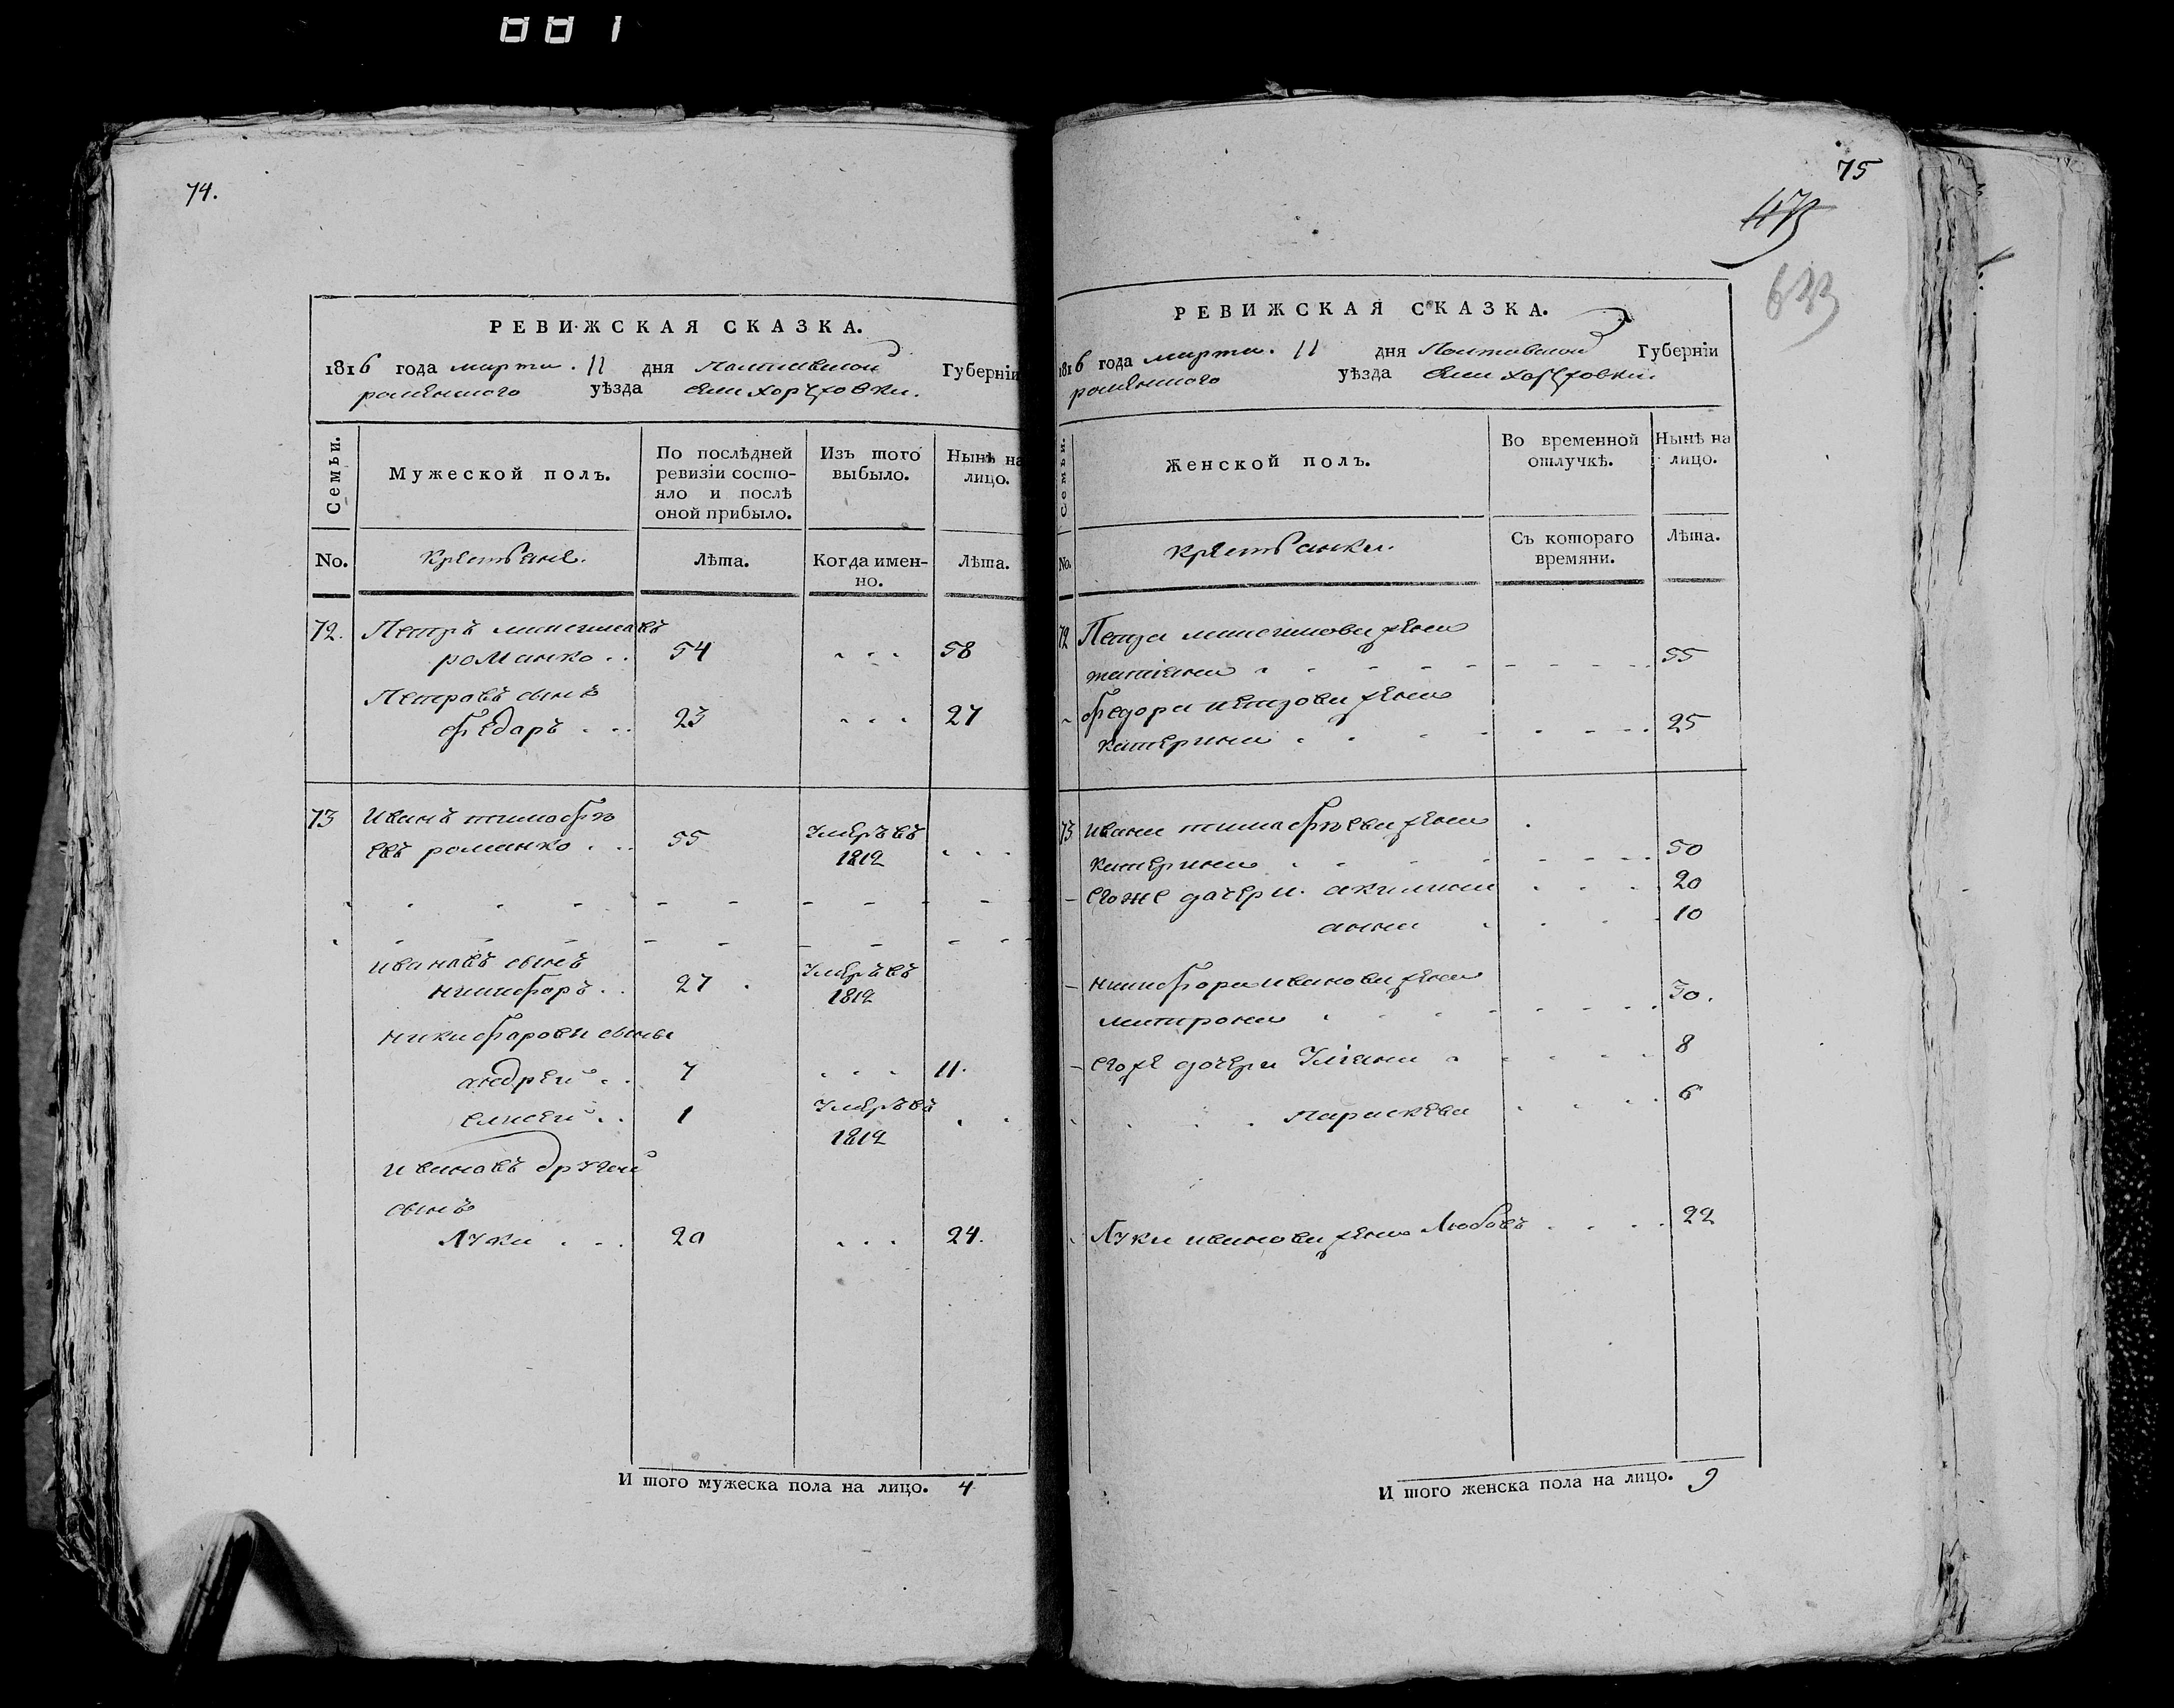 881
74.
РЕВИЖСКАЯ СКАЗКА.
1816 года марта. 11 дня Полтавской Губерніи
роменского уѣзда
Семьи.
Мужеской полъ.
По послѣдней ревизіи состояло и послѣ оной прибыло.
Изъ того выбыло.
Нынѣ на лицо.
No.
Крестьяне.
Лѣта.
Когда именно.
Лѣта.
72. Петръ
романко . . 54 . . . 58
Петровъ сынъ
Федаръ . . . 23 . . . 27
73 Иванъ тимофѣ
евъ романко . . . 55 Умеръ въ 1812 . . .
Ивановъ сынъ
никифоръ . . 27 . Умеръ въ 1812
никифаровы сыны
андрей . . 7 . . . 11.
елисей . . 1 Умеръ въ 1812 . .
Ивановъ другой
сынъ
Лука . . . 20 . . . 24.
И того мужеска пола на лицо. 4
75
РЕВИЖСКАЯ СКАЗКА.
1816 года марта. 11 дня Полтавской Губерніи
роменского уѣзда
Семьи.
Женской полъ.
Во временной отлучкѣ.
Нынѣ на лицо.
No.
Крестьянки.
Съ котораго времяни.
Лѣта.
72 Петра жена
татiана . . . . . 55
Федора петрова жена
катерина . . . . . 25
73 Ивана тимофѣева жена
катерина . . . . . 50
его же дочери. акилина . . . 20
анна . . . 10
никифора иванова жена
матрона . . . . . 30.
его же дочери Улiана . . . 8
. . . параскева . . . 6
Луки иванова жена Любовъ . . . . 22
И того женска пола на лицо. 9